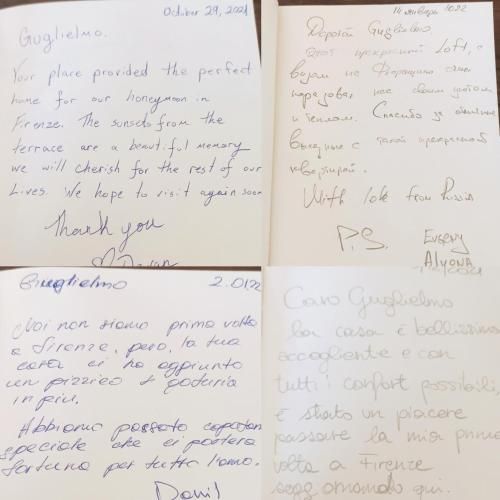 October 29, 2021
Guglielmo.
Your place provided the perfect
home for our honeymoon in
Firenze. The sunsets from the
terrace are a beautiful memory
we will cherish for the rest of our
Lives. We hope to visit again soon
Thank you
14 января 2022
Дорогой Guglielmo,
Этот прекрасный Loft, с
видом на Флоренцию очень
порадовал нас своим уютом
и теплом. Спасибо за отличные
выходные с такой прекрасной
квартирой.
With love from Russia
P.S. Evgeny
Alyona
Guglielmo 2.01.22
Noi non siamo prima volta
a Firenze, però, la tua
casa ci ha aggiunto
un pizzico
in più.
Abbiamo passato capodanno
speciale che ci porterà
fortuna per tutto l'anno.
Danil
2021
Caro Guglielmo
la casa è bellissima
accogliente e con
tutti i confort possibili,
è stato un piacere
passare la mia prima
volta a Firenze
soggiornando qui.